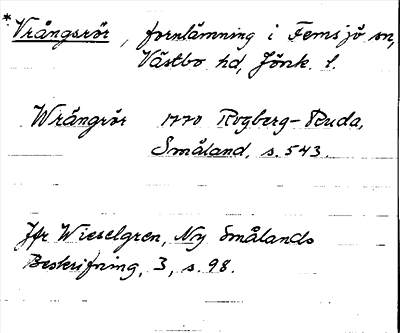 *Vrångsrör, fornlämning i Femsjö sn,
Västbo hd, Jönk. l.
Wrångrör 1770 Rogberg-Ruda,
Småland, s. 543.
Jfr Wieselgren, Ny Smålands
Beskrifning, 3, s. 98.